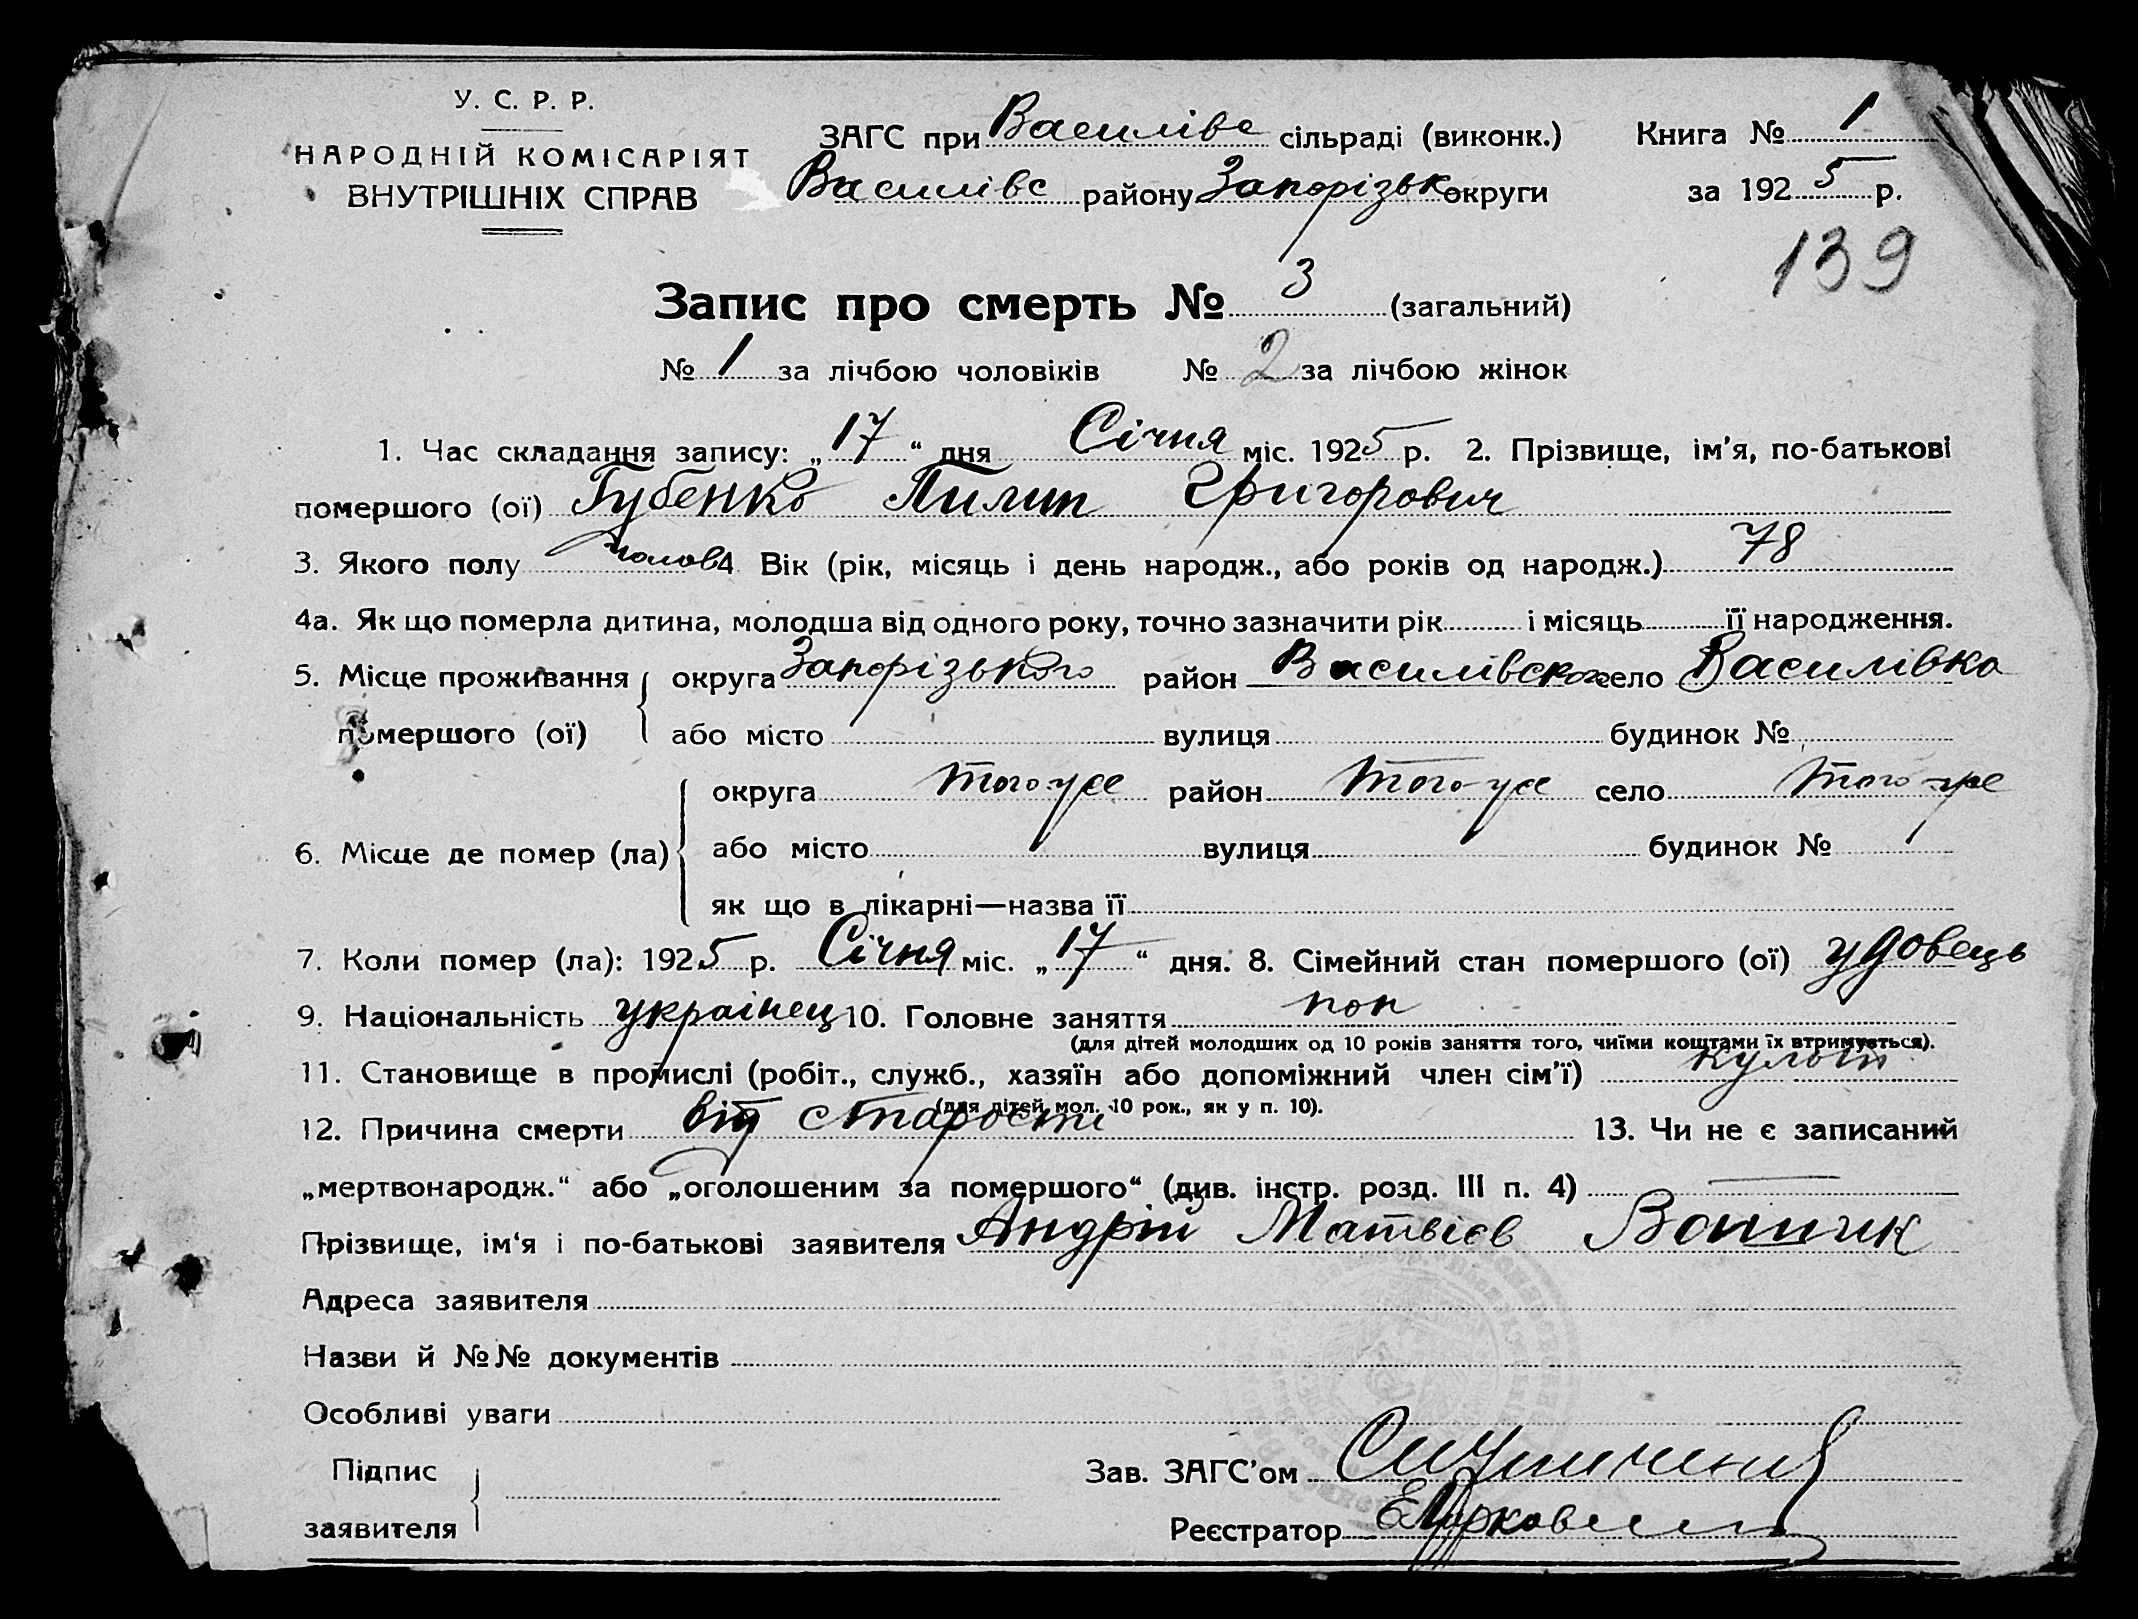 У. С. Р. Р.
НАРОДНІЙ КОМІСАРІЯТ
ВНУТРІШНІХ СПРАВ
ЗАГС при Василівс сільраді (виконк.)
Василівс району Запорізьк округи
Книга № 1
за 1925 р.
139
Запис про смерть № 3 (загальний)
№ 1 за лічбою чоловіків № 2 за лічбою жінок
1. Час складання запису: „17“ дня Січня міс. 1925 р. 2. Прізвище, ім'я, по-батькові
помершого (ої) Губенко Пилип Григорович
3. Якого полу чолов 4. Вік (рік, місяць і день народж., або років од народж.) 78
4а. Як що померла дитина, молодша від одного року, точно зазначити рік і місяць її народження.
5. Місце проживання округа Запорізького район Василівского село Василівка
помершого (ої) або місто вулиця будинок №
округа того-же район того-же село того-же
6. Місце де помер (ла) або місто вулиця будинок №
як що в лікарні—назва її
7. Коли помер (ла): 1925 р. Січня міс. „17“ дня. 8. Сімейний стан помершого (ої) удовець
9. Національність украінец 10. Головне заняття поп
(для дітей молодших од 10 років заняття того, чиїми коштами їх втримується).
11. Становище в промислі (робіт., служб., хазяїн або допоміжний член сім'ї) культ
(для дітей мол. 10 рок., як у п. 10).
12. Причина смерти від старости 13. Чи не є записаний
„мертвонародж.“ або „оголошеним за помершого“ (див. інстр. розд. III п. 4) —
Прізвище, ім'я і по-батькові заявителя Андрій Матвієв
Адреса заявителя
Назви й №№ документів
Особливі уваги
Підпис
заявителя
Зав. ЗАГС'ом
Реєстратор